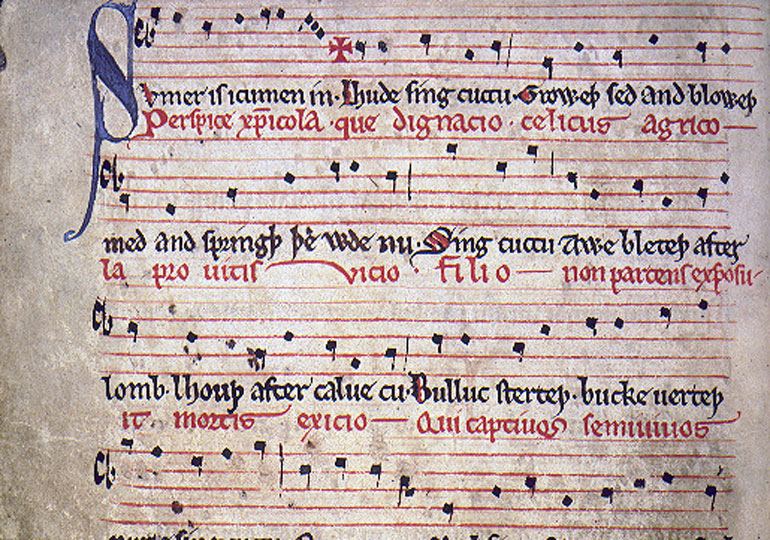 Svmer is icumen in. Lhude sing cuccu. Groweþ sed and bloweþ
Perspice xp̅icola . que dignacio . celicus agrico
med and springþ þe wde nu. Sing cuccu Awe bleteþ after
la pro uitis vicio . filio non parcens exposu-
lomb. lhouþ after calue cu. Bulluc sterteþ. bucke uerteþ
it mortis exicio Qui captiuos semiuiuos